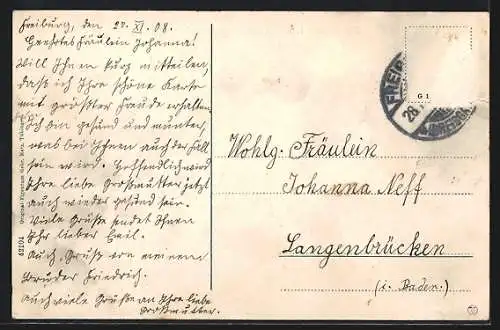 Freiburg, den 20. XI. 08.
Geehrtes Fräulein Johanna!
Will Ihnen kurz mitteilen,
daß ich Ihre schöne Karte
mit größter Freude erhalten.
Ich bin gesund und munter,
was bei Ihnen auch der Fall
sein wird. Hoffentlich wird
Ihre liebe Großmutter jetzt
auch wieder gesund sein.
Viele Grüße sendet Ihnen
Ihr lieber Emil.
Auch Gruß von meinem
Bruder Friedrich.
Auch viele Grüße an Ihre liebe
Großmutter.
42104
FREIB
26
G 1
Wohlg. Fräulein
Johanna Neff
Langenbrücken
(i. Baden.)